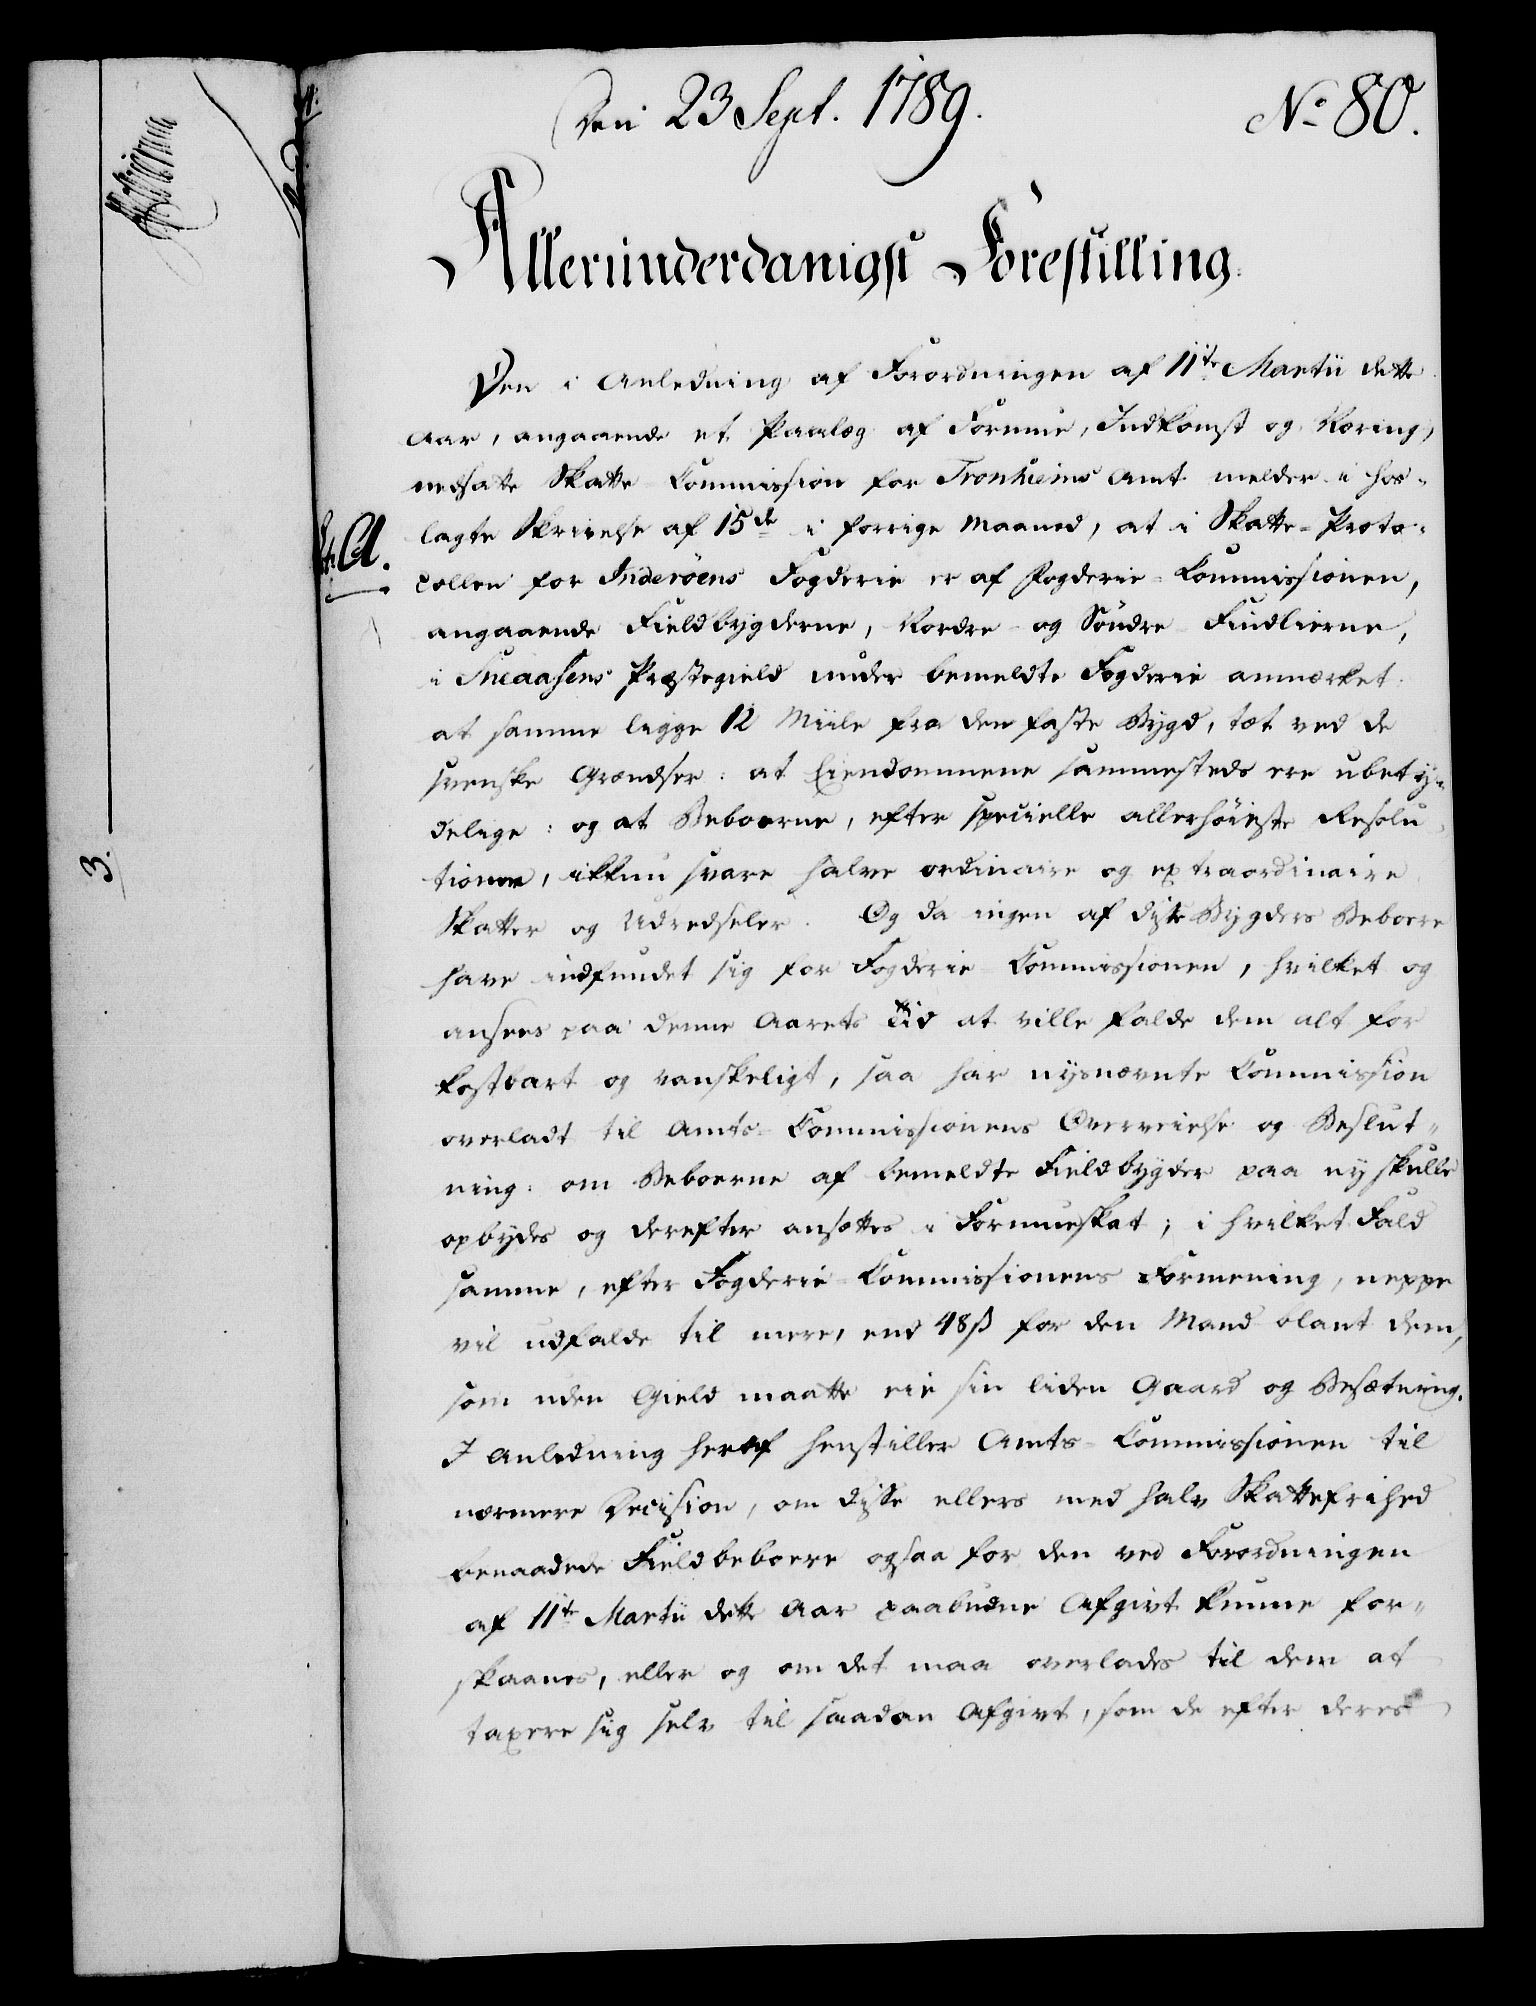 Den 23 Sept. 1789.
No 80.
Allerunderdanigst Forestilling.
Den i Anledning af Forordningen af 11te Martii dette
Aar, angaaende et Paalæg af Formue, Indkomst og Næring,
nedsatte Skatte Commission for Tronhiems Amt melder i hos-
lagte Skrivelse af 15de i forrige Maaned, at i Skatte-Proto-
A.
collen for Inderöens Fogderie er af Fogderie-Commissionen,
angaaende Fieldbygderne, Nordre og Söndre Findlierne,
i Sneaasens Præstegield under bemeldte Fogderie anmærket:
at samme ligge 12 Miile fra den faste Bygd, tæt ved de
svenske Grændser: at Eiendommene sammesteds ere ubety-
delige: og at Beboerne, efter specielle allerhöieste Resolu-
tioner, ikkun svare halve ordinaire og extraordinaire
Skatter og Udredseler. Og da ingen af disse Bygders Beboere
have indfundet sig for Fogderie Commissionen, hvilket og
ansees paa denne Aarets Tid at ville falde dem alt for
kostbart og vanskeligt, saa har nysnævnte Commission
overladt til Amts-Commissionens Overveielse og Beslut-
ning: om Beboerne af bemeldte Fieldbygder paa ny skulle
opbydes og derefter ansættes i Formueskat; i hvilket Fald
samme, efter Fogderie-Commissionens Formening, neppe
vil udfalde til mere, end 48ß for den Mand blant dem,
som uden Gield maatte eie sin liden Gaard og Besætning.
I Anledning heraf henstiller Amts-Commissionen til
nærmere Decision, om disse ellers med halv Skattefrihed
benaadede Fieldbeboere ogsaa for den ved Forordningen
af 11te Martii dette Aar paabudne Afgivt kunne for-
skaanes, eller og om det maa overlades til dem at
taxere sig selv til saadan Afgivt, som de efter deres
3.